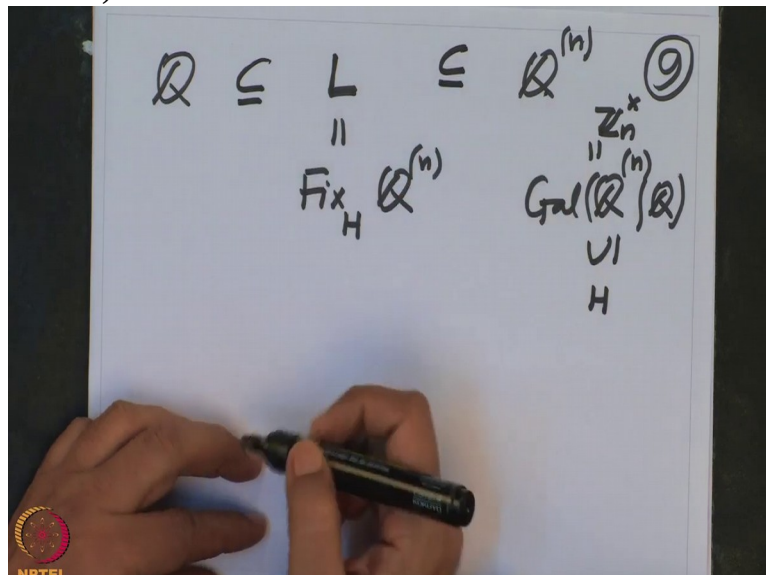 ℚ ⊆ L ⊆ ℚ^(n) ⑨
ℤ_n^×
|| ||
Fix_H ℚ^(n) Gal(ℚ^(n)|ℚ)
∪|
H
NPTEL